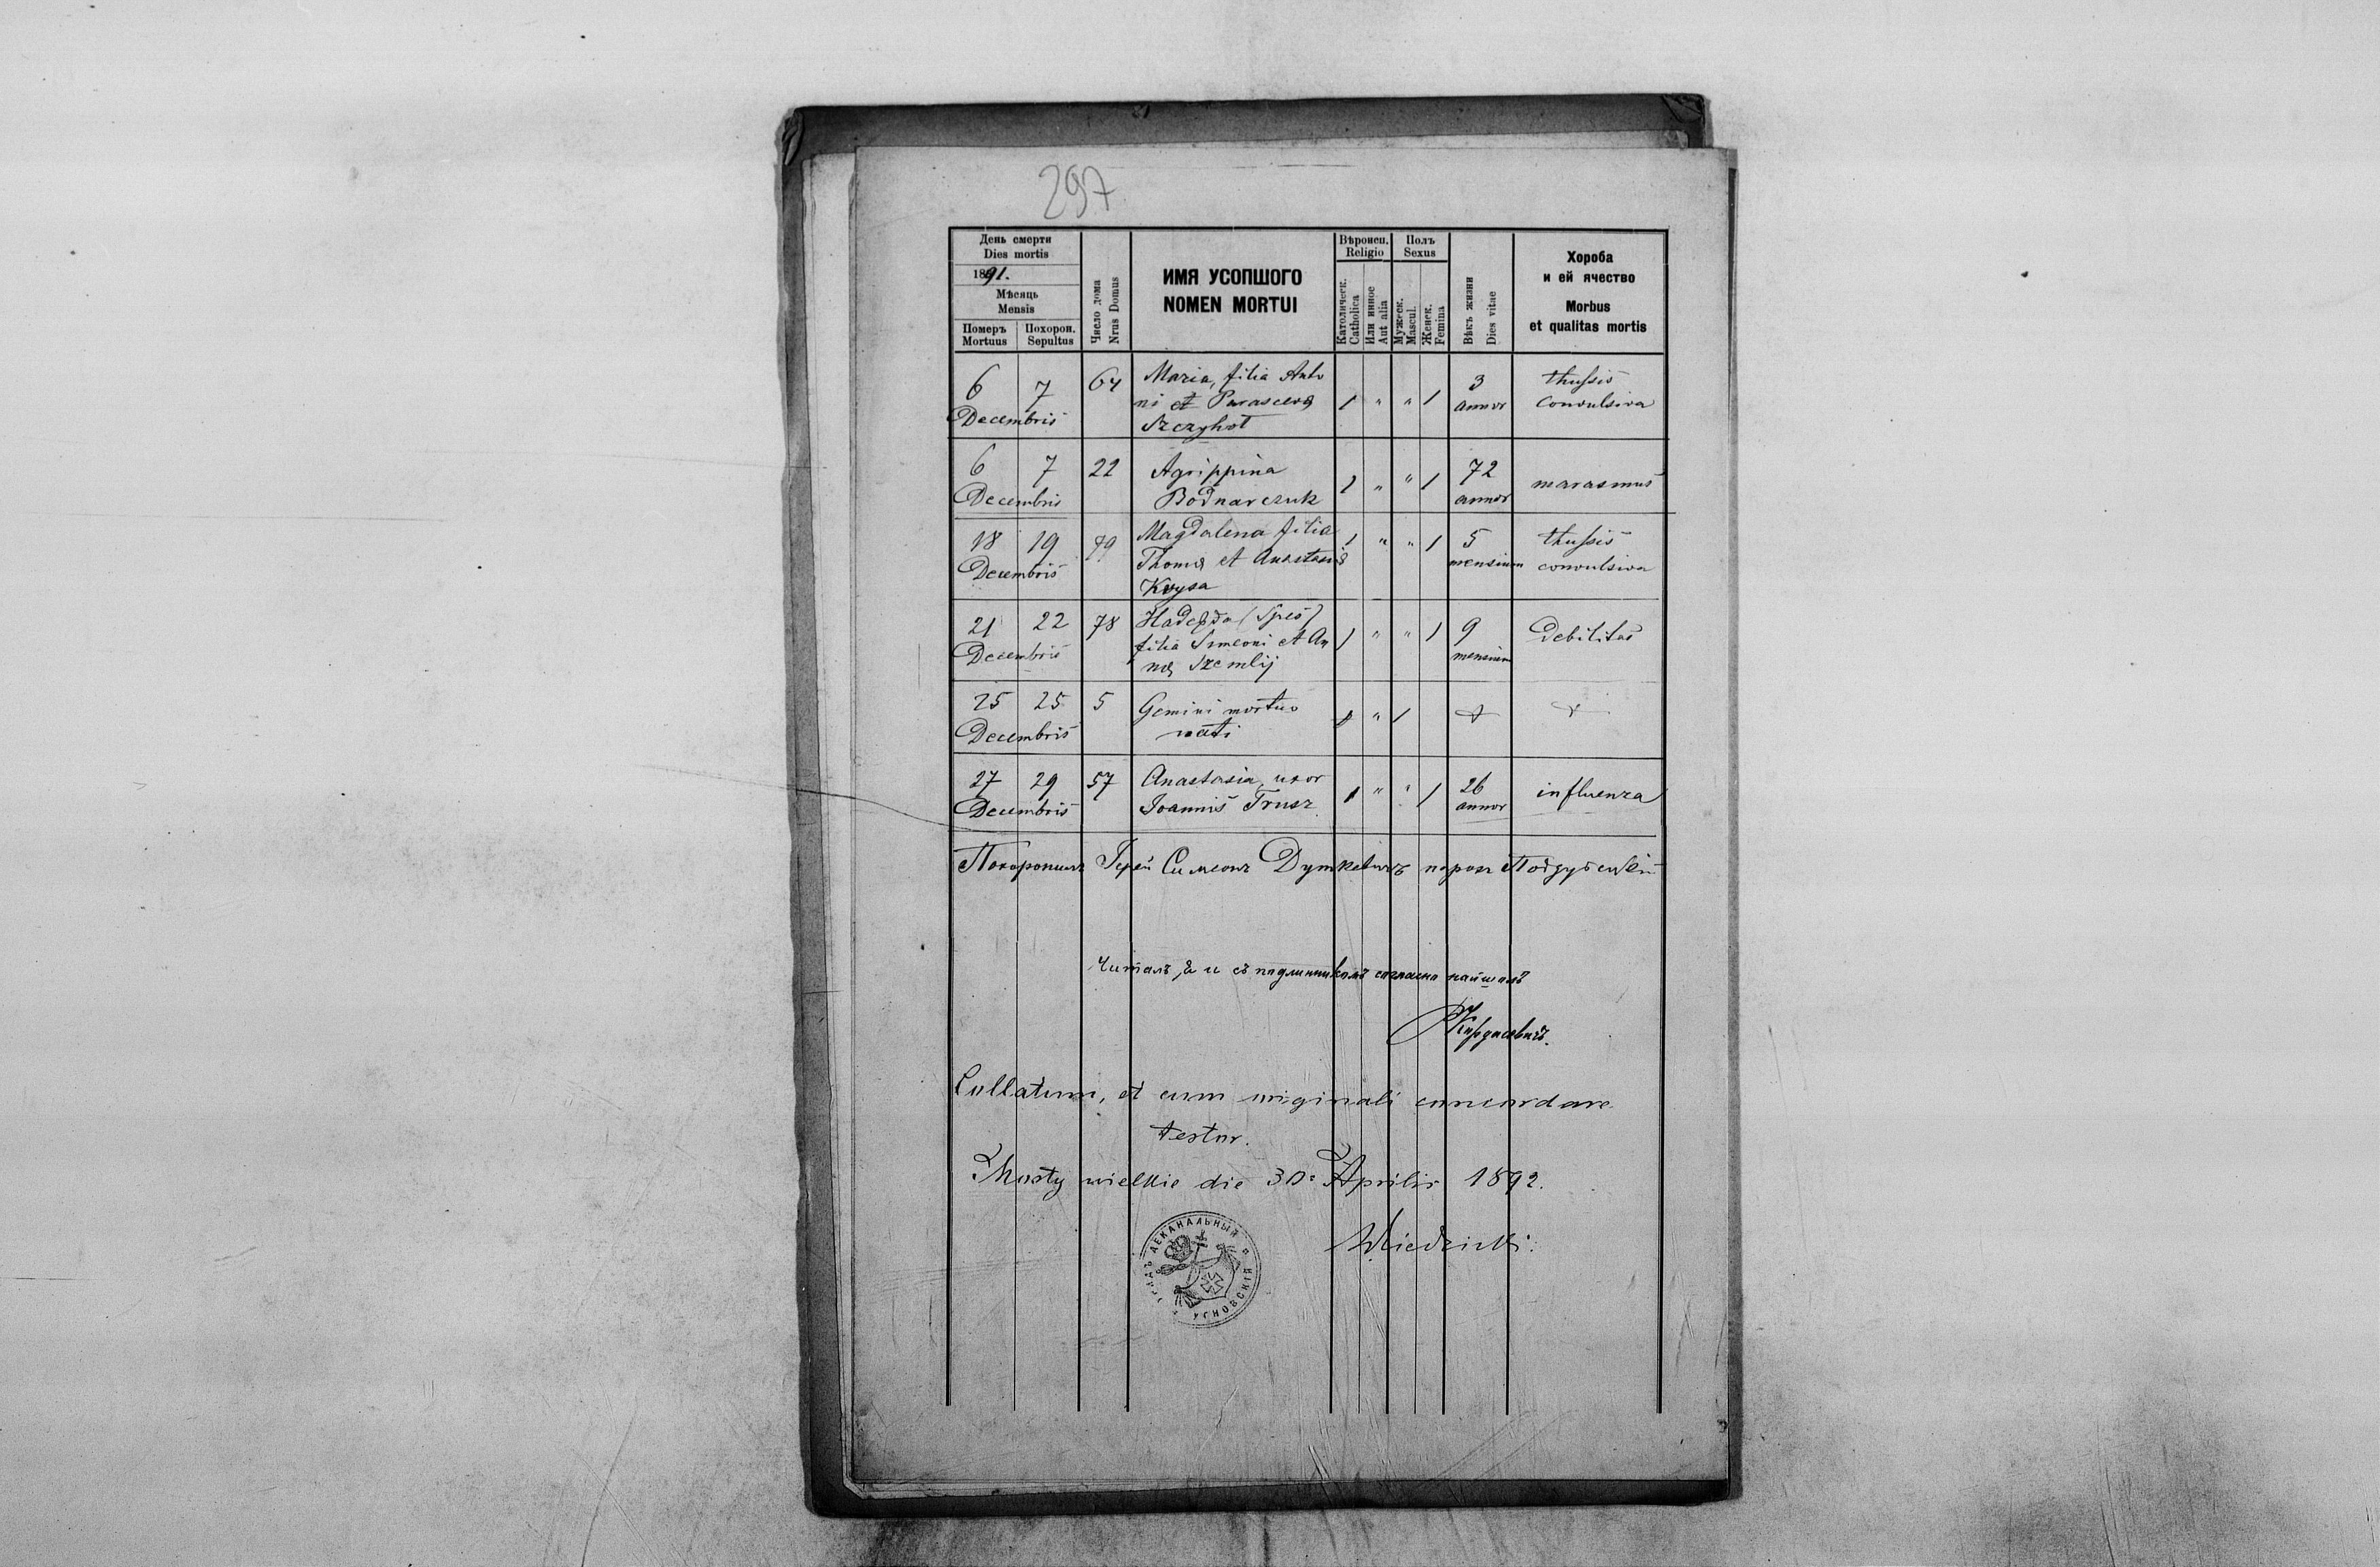 297
День смерти
Dies mortis
1891.
Мѣсяць
Mensis
Померъ Похорон.
Mortuus Sepultus
Число дома
Nrus Domus
ИМЯ УСОПШОГО
NOMEN MORTUI
Вѣроисп.
Religio
Католическ.
Catholica
Или инное
Aut alia
Полъ
Sexus
Мужеск.
Mascul.
Женск.
Femina
Вѣкъ жизни
Dies vitae
Хороба
и ей ячество
Morbus
et qualitas mortis
6 7 64 Maria, filia Anto 3 thussis
ni et Parascevæ 1 " " 1 annor convulsiva
Decembris Szczyhot
6 7 22 Agrippina 1 " " 1 72 marasmus
Decembris Bodnarczuk annor
18 19 79 Magdalena filia 1 " " 1 5 thussis
Decembris Thomæ et Anastasiæ mensium convulsiva
Krysa
21 22 78 (Spes) 1 " " 1 9 Debilitas
Decembris filia Simeoni et An mensium
næ Szemlij
25 25 5 Gemini mortuo 1 " 1
Decembris nati
27 29 57 Anastasia, uxor 1 " " 1 26 influenza
Decembris Joannis Trusz annor
Похоронилъ Іерей Симеонъ Дуткевичъ парох
Читалъ, и съ подлинникомъ согласно найшолъ
Collatum, et cum originali concordare
testor.
Mosty wielkie die 30a Aprilis 1892.
ДЕКАНАЛЬНЫЙ